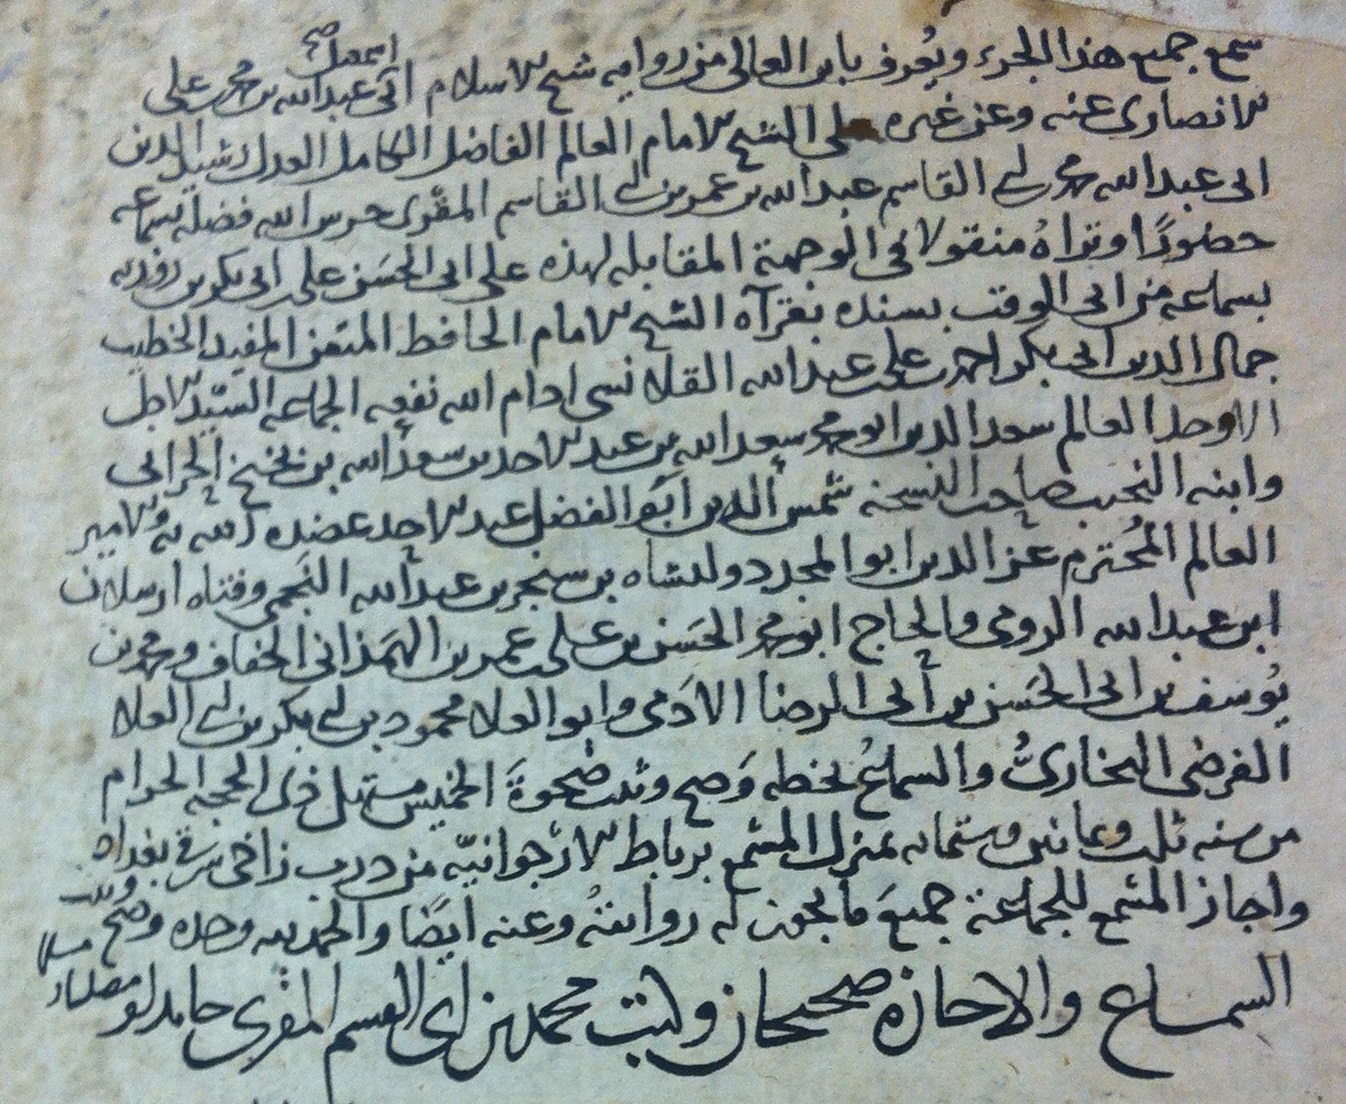 سمع جميع هذا الجزء ويُعرف بابن العالي من رواية شيخ الاسلام ابي اسمعيل صح عبد الله بن محمد بن علي
الانصاري عنه وعن غيره على الشيخ الامام العالم الفاضل الكامل العدل رشيد الدين
ابي عبد الله محمد بن ابي القاسم عبد الله بن عمر بن ابي القاسم المقرى حرس الله فضله بسماعه
حضورًا وتراهُ منقولا في الوجهة المقابله لهذه على ابي الحسَن علي بن ابي بكر بن روزبه
بسماعه من ابي الوقت بسنده بقرآة الشيخ الامام الحافظ المتقن المفيد الخطيب
جمال الدين ابي بكر احمد بن علي بن عبد الله القلانسي ادام الله نفعه الجماعه السيّد الاجل
الاوحد العالم سعد الدين ابو محمد سعد الله بن عبد الاحد بن سعد الله بن بخيخ الحراني
وابنه النجيب صاحب النسخه شمس الدين ابو الفضل عبد الاحد عضده الله به والامير
العالم المُحترم عز الدين ابو المجد دولتشاه بن سنجر بن عبد الله النجمي وفتاه ارسلان
ابن عبد الله الرومي والحاج ابو محمد الحسَن بن علي بن عمر بن الهمَذاني الخفاف ومحمد بن
يُوسف بن ابي الحسَن بن ابي الرضا الادَمى وابو العلا محمود بن ابي بكر بن ابي العلا
الفرضي البخاريُّ والسماعُ بخطه وَصح وثبت ضحوةَ الخميس مستهل ذي الحجه الحرام
من سنه ثلث وثمانين وستمائه بمنزل المسمع برباط الارجوانيّه من درب زاخي شرقي بغداد
واجاز المسمع للجماعة جميعَ ما يجوز له روايتهُ وعنه ايضًا والحمد لله وحده وصح وثبت
السماع والاجازة صحيحان وكتب محمد بن ابي القسم المقرى حامدا لله مصليا مسلما